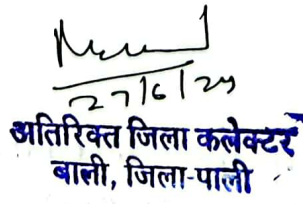 27/6/24
अतिरिक्त जिला कलेक्टर
बाली, जिला-पाली